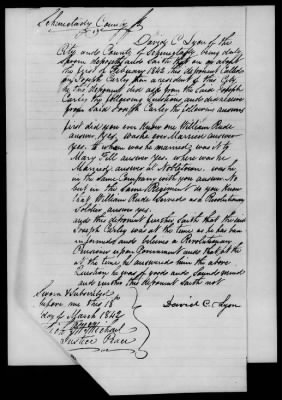 Schenectady County ss
David C Lyon of the
City and County of Schenectady being duly
sworn deposeth and saith that on or about
the first of February 1842 this deponent called
on Joseph Carley a resident of this City
the this deponent did ask from the said Joseph
Carley the following questions and did receive
from said Joseph Carley the following answers
first did you ever know one William Rude
answer, Yes, was he ever Married answer
Yes. to whom was he married, was it to
Mary Hill answer yes. where was he
Married answer at Nobletown. was he
in the same Company with you answer No
but in the same Regiment do you know
that William Rude served as a Revolutionary
Soldier answer yes.
and this deponent further saith that the said
Joseph Carley was at the time as he has been
informed and believes a Revolutionary
Pensioner upon Government and that at the
time he answered him the above
Question he was of good and sound mind
and further this deponent saith not
Sworn & Subscribed
before me this 18th
day of March 1842
David C. Lyon
Michael
Justice Peace